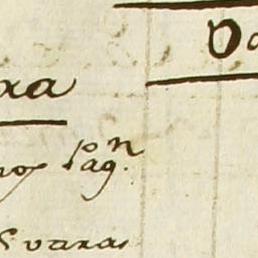 Da
ra
nos Pagⁿ.
S varas